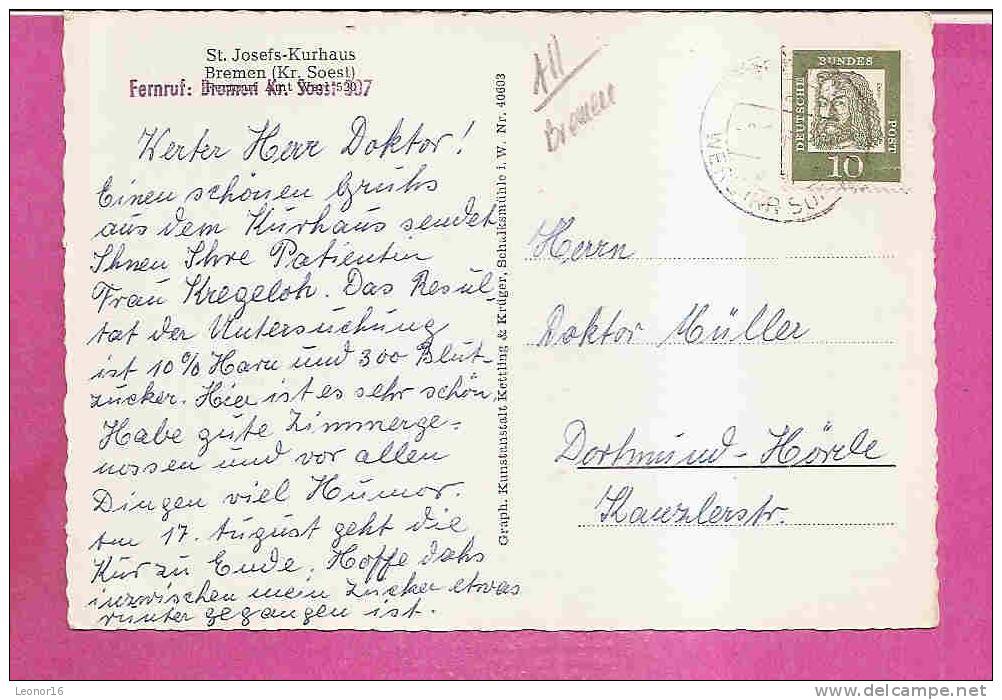 St. Josefs-Kurhaus
Bremen (Kr. Soest)
Fernruf: Bremen Kr. Soest 307
Werter Herr Doktor!
Einen schönen Gruhs
aus dem Kurhaus sendet
Ihnen Ihre Patientin
Frau Kregeloh. Das Resul-
tat der Untersuchung
ist 10% Harn und 300 Blut-
zucker. Hier ist es sehr schön,
Habe gute Zimmerge=
nossen und vor allen
Dingen viel Humor.
Am 17. August geht die
Kur zu Ende. Hoffe dahs
inzwischen mein Zucker etwas
runter gegangen ist.
Graph. Kunstanstalt Kettling & Krüger, Schalksmühle i. W. Nr. 40603
All
Bremen
DEUTSCHE
BUNDES
POST
10
Herrn
Doktor Müller
Dortmund-Hörde
Kanzlerstr.
Leonor16
delcampe.net